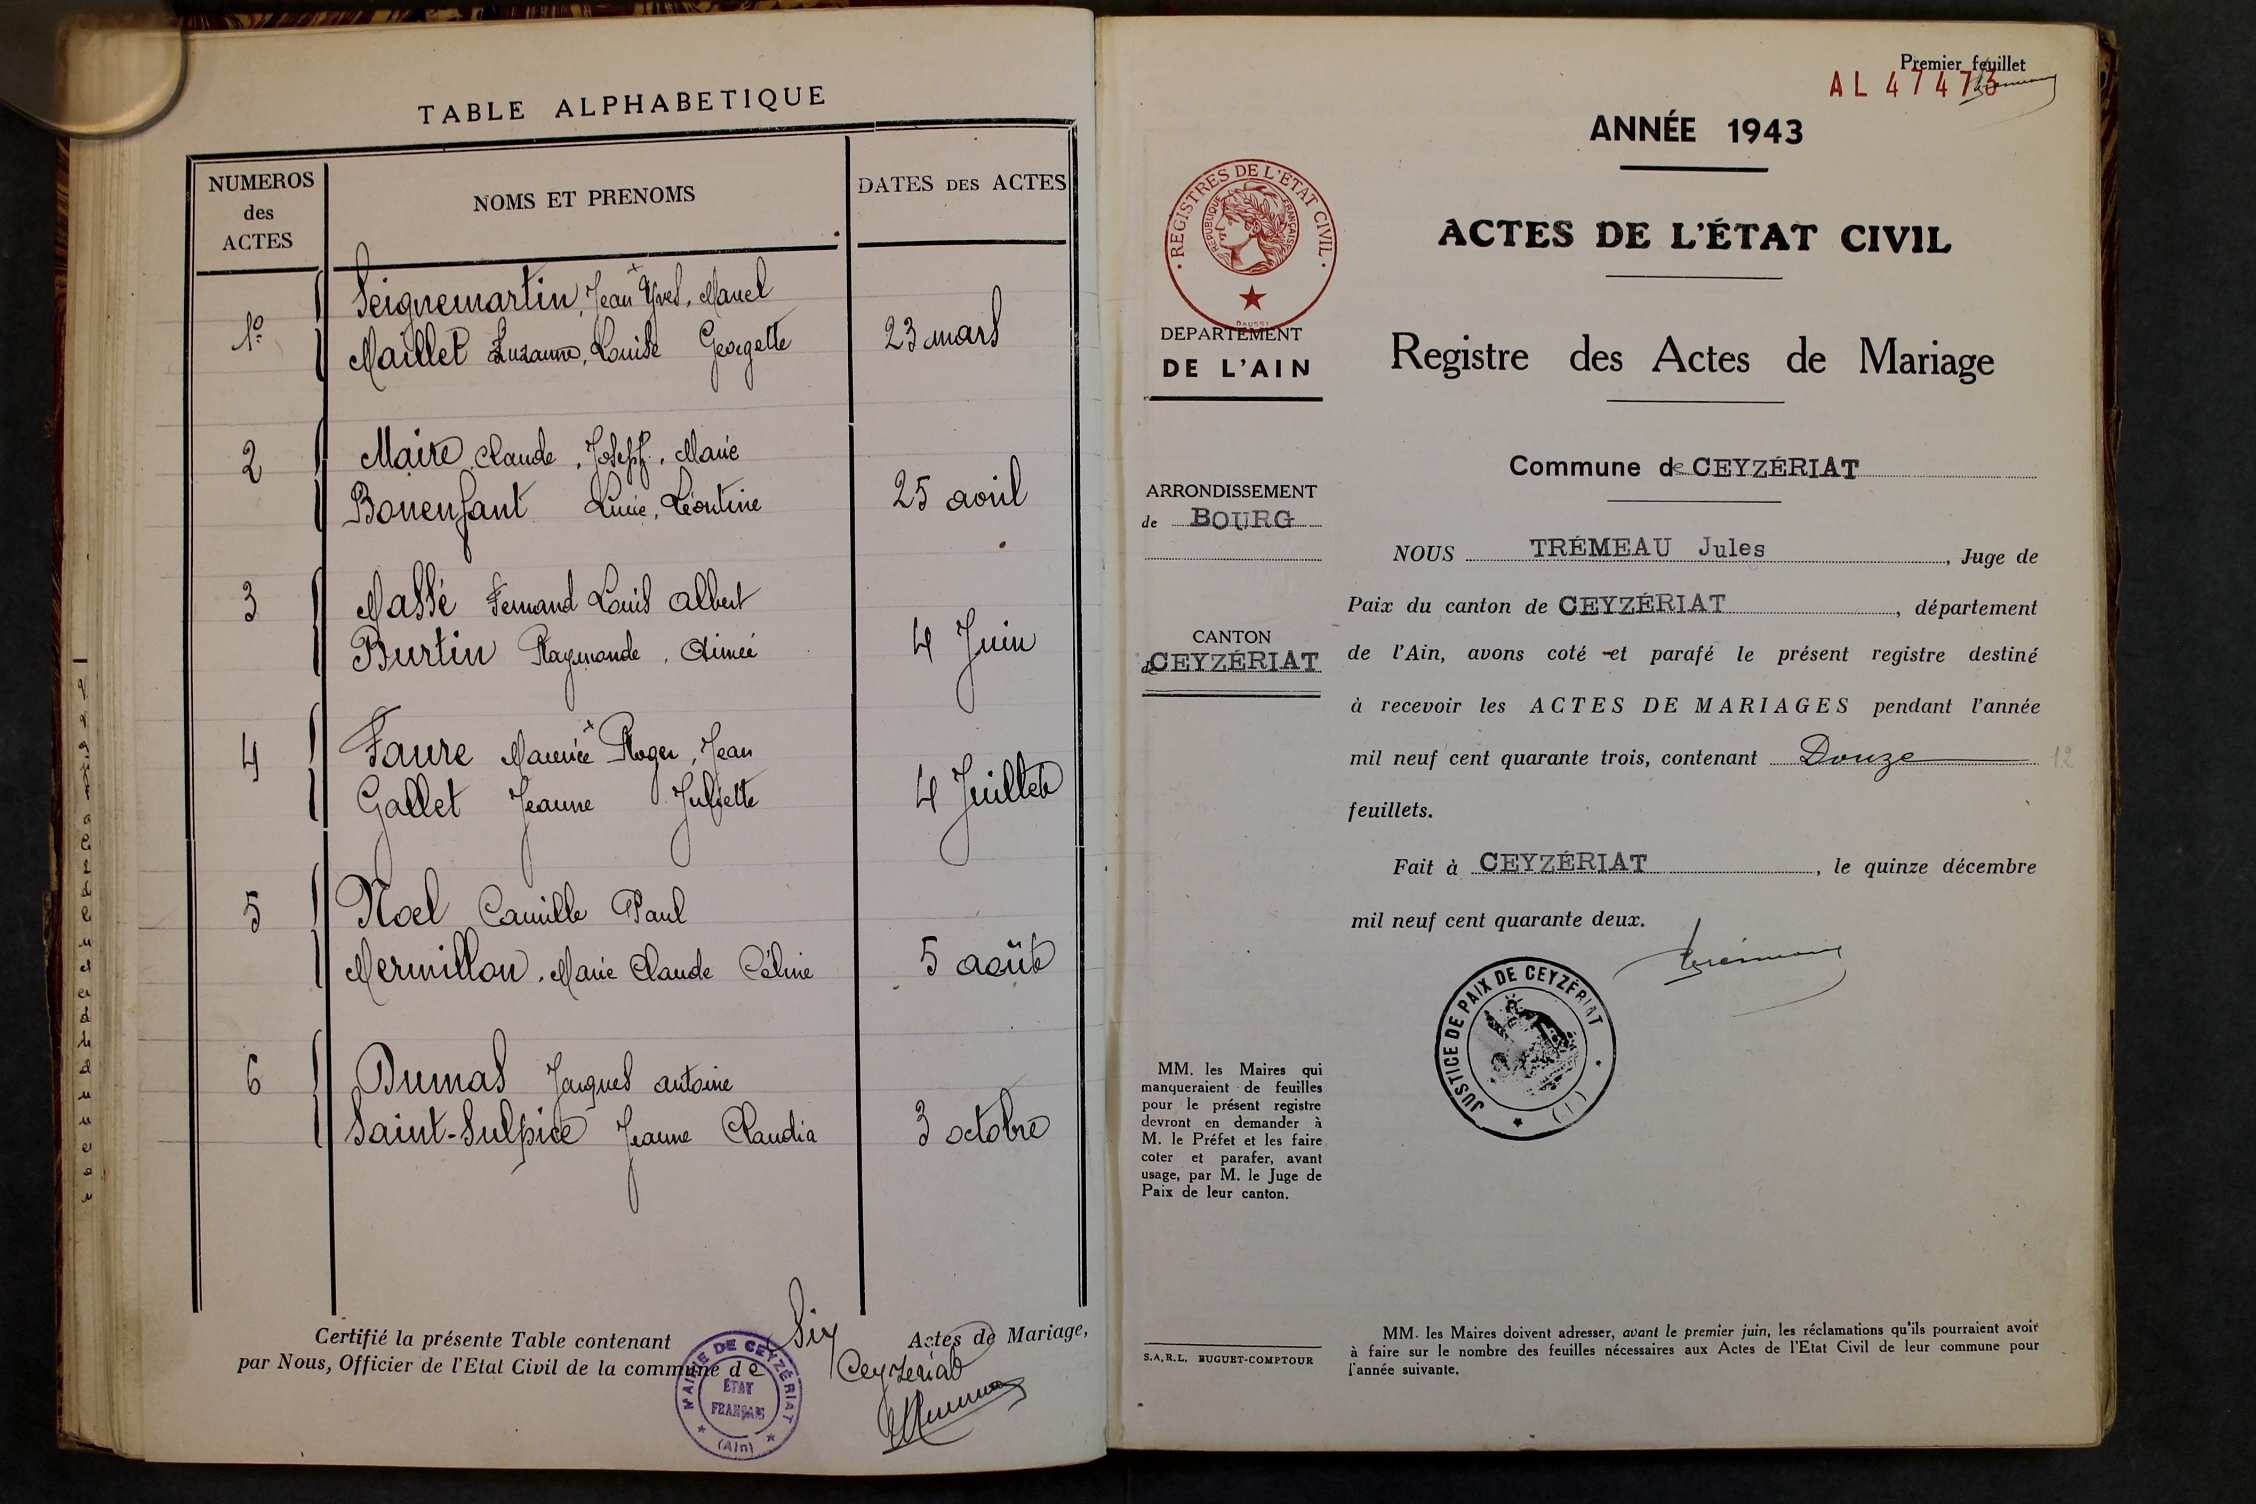 TABLE ALPHABETIQUE
NUMEROS
des
ACTES
NOMS ET PRENOMS
DATES DES ACTES
1º
Seignemartin, Jean Yves, Marcel
Maillet Suzanne, Louise Georgette
23 mars
2
Maire, Claude, Joseph, Marie
Bonenfant Lucie, Léontine
25 avril
3
Massé Fernand Louis Albert
Burtin Raymonde, Aimée
4 Juin
4
Faure Maurice Roger, Jean
Gallet Jeanne Juliette
4 Juillet
5
Noel Camille Paul
Mermillon, Marie Claude Céline
5 août
6
Dumas Jacques Antoine
Saint-Sulpice Jeanne Claudia
3 octobre
Certifié la présente Table contenant Six Actes de Mariage,
par Nous, Officier de l'Etat Civil de la commune de Ceyzériat
MAIRIE DE CEYZÉRIAT
ETAT
FRANÇAIS
(Ain)
Premier feuillet
AL 47473
ANNÉE 1943
ACTES DE L'ÉTAT CIVIL
Registre des Actes de Mariage
Commune de CEYZÉRIAT
REGISTRES DE L'ÉTAT CIVIL
RÉPUBLIQUE FRANÇAISE
DÉPARTEMENT
DE L'AIN
ARRONDISSEMENT
de BOURG
CANTON
de CEYZÉRIAT
NOUS TRÉMEAU Jules, Juge de
Paix du canton de CEYZÉRIAT, département
de l'Ain, avons coté et parafé le présent registre destiné
à recevoir les ACTES DE MARIAGES pendant l'année
mil neuf cent quarante trois, contenant Douze 12
feuillets.
Fait à CEYZÉRIAT, le quinze décembre
mil neuf cent quarante deux.
JUSTICE DE PAIX DE CEYZÉRIAT
MM. les Maires qui
manqueraient de feuilles
pour le présent registre
devront en demander à
M. le Préfet et les faire
coter et parafer, avant
usage, par M. le Juge de
Paix de leur canton.
S.A.R.L. BUGUET-COMPTOUR
MM. les Maires doivent adresser, avant le premier juin, les réclamations qu'ils pourraient avoir
à faire sur le nombre des feuilles nécessaires aux Actes de l'Etat Civil de leur commune pour
l'année suivante.